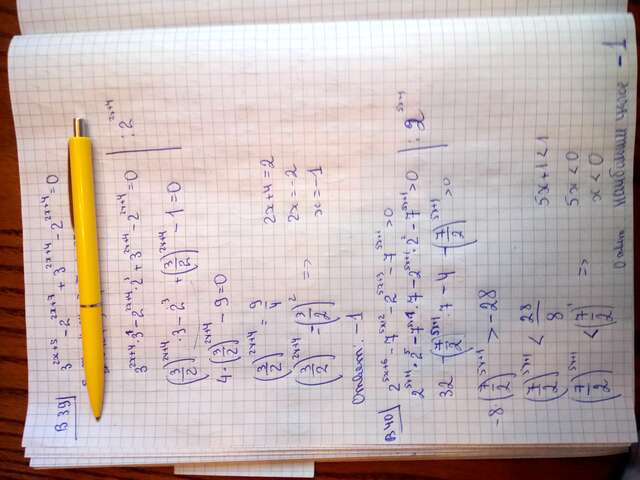 В 39
3^{2x+5} - 2^{2x+7} + 3^{2x+4} - 2^{2x+4} = 0
3^{2x+4} · 3 - 2^{2x+4} · 2^3 + 3^{2x+4} - 2^{2x+4} = 0 | : 2^{2x+4}
(3/2)^{2x+4} · 3 - 2^3 + (3/2)^{2x+4} - 1 = 0
4 · (3/2)^{2x+4} - 9 = 0
(3/2)^{2x+4} = 9/4 2x+4 = 2
(3/2)^{2x+4} = (3/2)^2 => 2x = -2
x = -1
Ответ: -1
В 40
2^{5x+6} - 7^{5x+2} - 2^{5x+3} - 7^{5x+1} > 0
2^{5x+1} · 2^5 - 7^{5x+1} · 7 - 2^{5x+1} · 2^2 - 7^{5x+1} > 0 | : 2^{5x+1}
32 - (7/2)^{5x+1} · 7 - 4 - (7/2)^{5x+1} > 0
-8 · (7/2)^{5x+1} > -28
(7/2)^{5x+1} < 28/8 5x+1 < 1
(7/2)^{5x+1} < (7/2)^1 => 5x < 0
x < 0
Ответ наибольшее целое -1